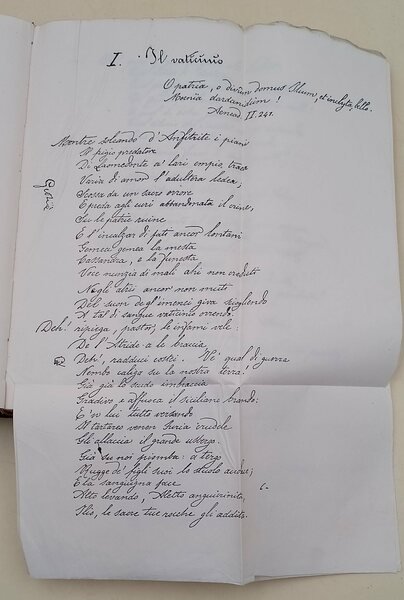 I. Il vaticinio
O patria, o divum domus Ilium, et inclyta bello
Moenia dardanidum!
Aeneid. II. 241.
Mentre solcando d'Anfitrite i piani
Il frigio predatore
Di Laomedonte a' lari empio traea
Varia di amor l'adultera ledea;
Scossa da un sacro orrore
E preda agli euri abbandonata il crine,
Su le patrie ruine
E l'incalzar di fati ancor lontani
Gemea la mesta
Cassandra, e la funesta
Voce nunzia di mali ahi non creduti
Negli atrii ancor non muti
Del suon degl'imenei giva sciogliendo
A tal di sangue vaticinio orrendo.
Deh! ripiega, pastor, le infami vele:
De l'Atride a le braccia
Deh!, radduci costei. Ve' qual di guerra
Nembo caligo su la nostra terra!
Già già lo scudo imbraccia
Gradivo, e affusca il siculano brando:
E su lui tutto versando
Il tartareo venen Furia crudele
Gli allaccia il grande usbergo.
Già su noi piomba: a tergo
Rugge de' figli suoi lo stuolo audace;
E la sanguigna face
Alto levando, Aletto anguicrinita,
Ilio, le sacre tue rocche gli addita.